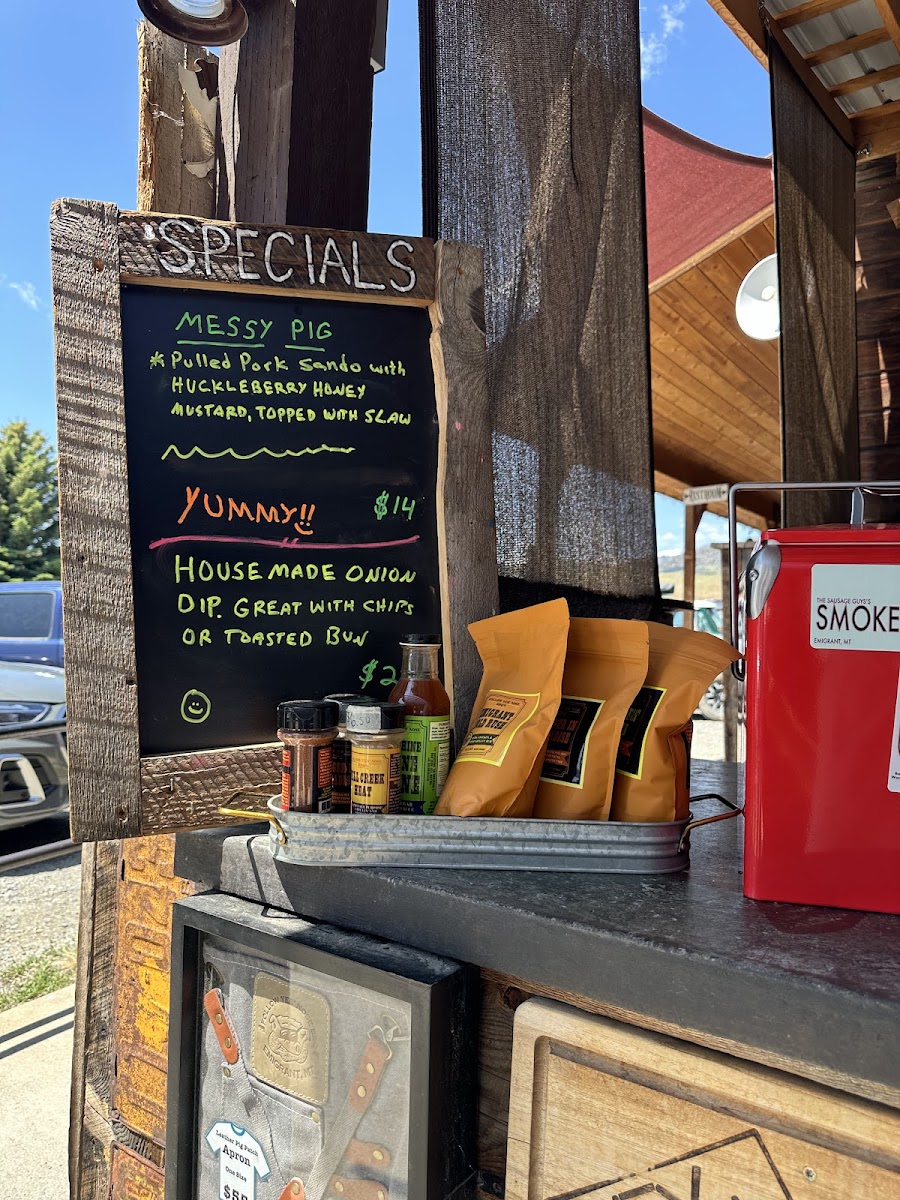 SPECIALS
MESSY PIG
*Pulled Pork Sando with
HUCKLEBERRY HONEY
MUSTARD, TOPPED WITH SLAW
YUMMY!!
$14
HOUSEMADE ONION
DIP. GREAT WITH CHIPS
OR TOASTED BUN
$2
RESTROOM
THE SAUSAGE GUYS'S
SMOKE
EMIGRANT, MT
6.50
CREEK
HEAT
EMIGRANT
EMIGRANT, MT
Leather Pig Patch
Apron
One Size